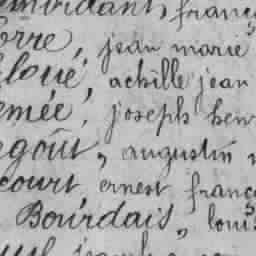 françois
orre, jean marie
loué, achille jean
emée, joseph hen
goût, augustin
court, ernest franç
Bourdais, louis